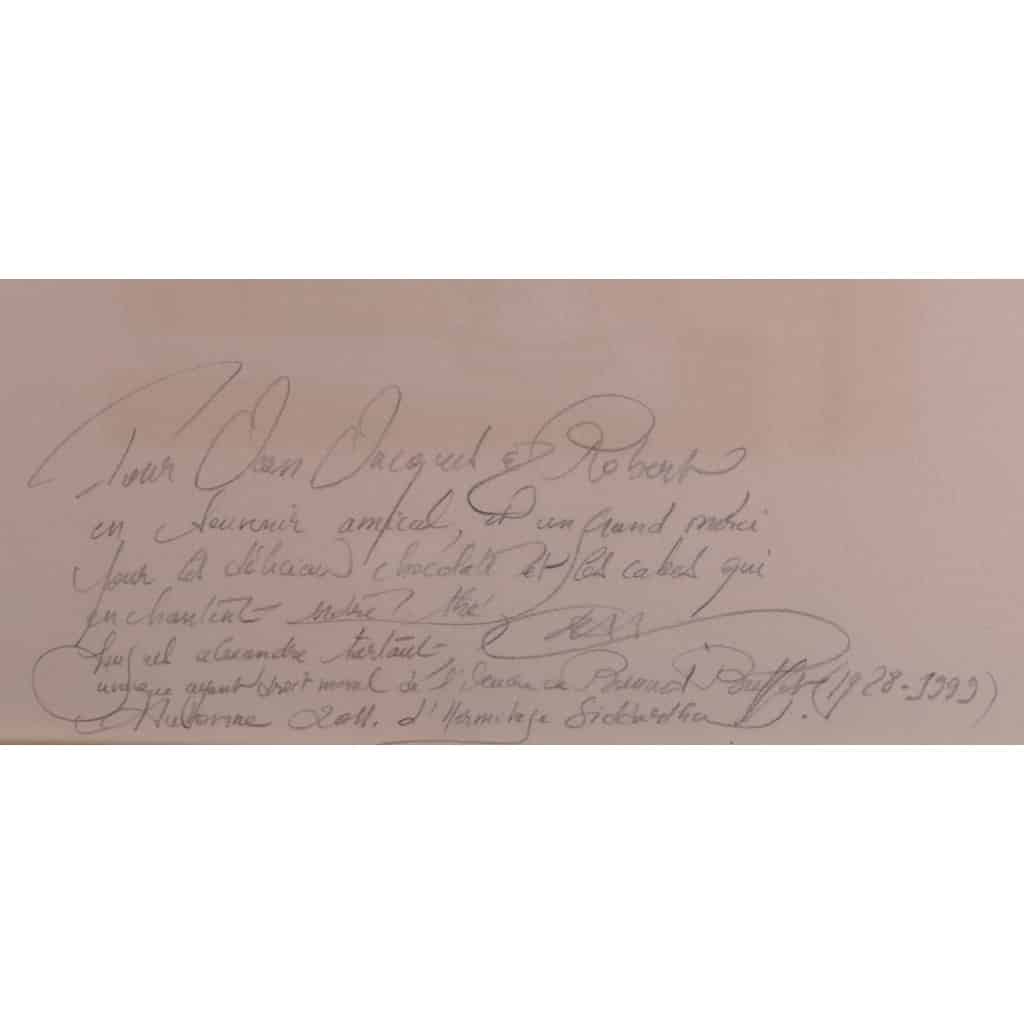 Pour Jean Jacques et Robert
en souvenir amical, et un grand merci
pour les délicieux chocolats et les cakes qui
enchantent notre thé
alexandre tartaut
unique ayant droit moral de l' de Bernard Buffet (1928-1999)
2011. d'Hermitage Siddhartha